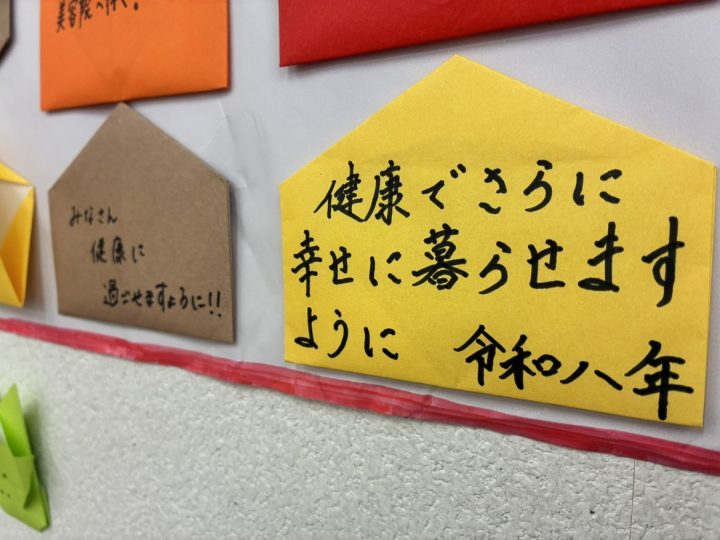 美容院へ行く!
みなさん
健康に
過ごせますように!!
健康でさらに
幸せに暮らせます
ように 令和八年